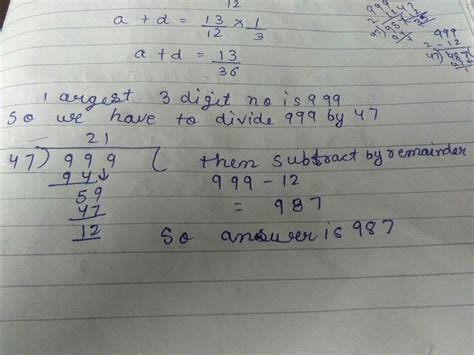 12
a + d = 13/12 × 1/3
a + d = 13/36
largest 3 digit no is 999
So we have to divide 999 by 47
21
47) 999 ( then subtract by remainder
94↓ 999 - 12
59 = 987
47
12 So answer is 987
999
2 - 12
47) 987